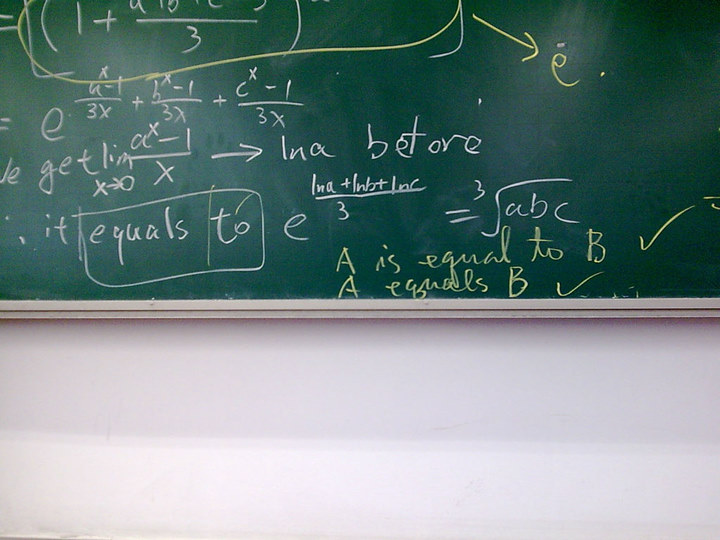 = (1 + 3)
e.
= e^{\frac{a^x-1}{3x} + \frac{b^x-1}{3x} + \frac{c^x-1}{3x}}
get lim_{x→0} \frac{a^x-1}{x} → lna before
it equals to e^{\frac{lna+lnb+lnc}{3}} = \sqrt[3]{abc}
A is equal to B ✓
A equals B ✓